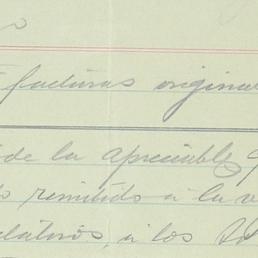 facturas origina
de la apreciable
remitido á la v
relativos, á los